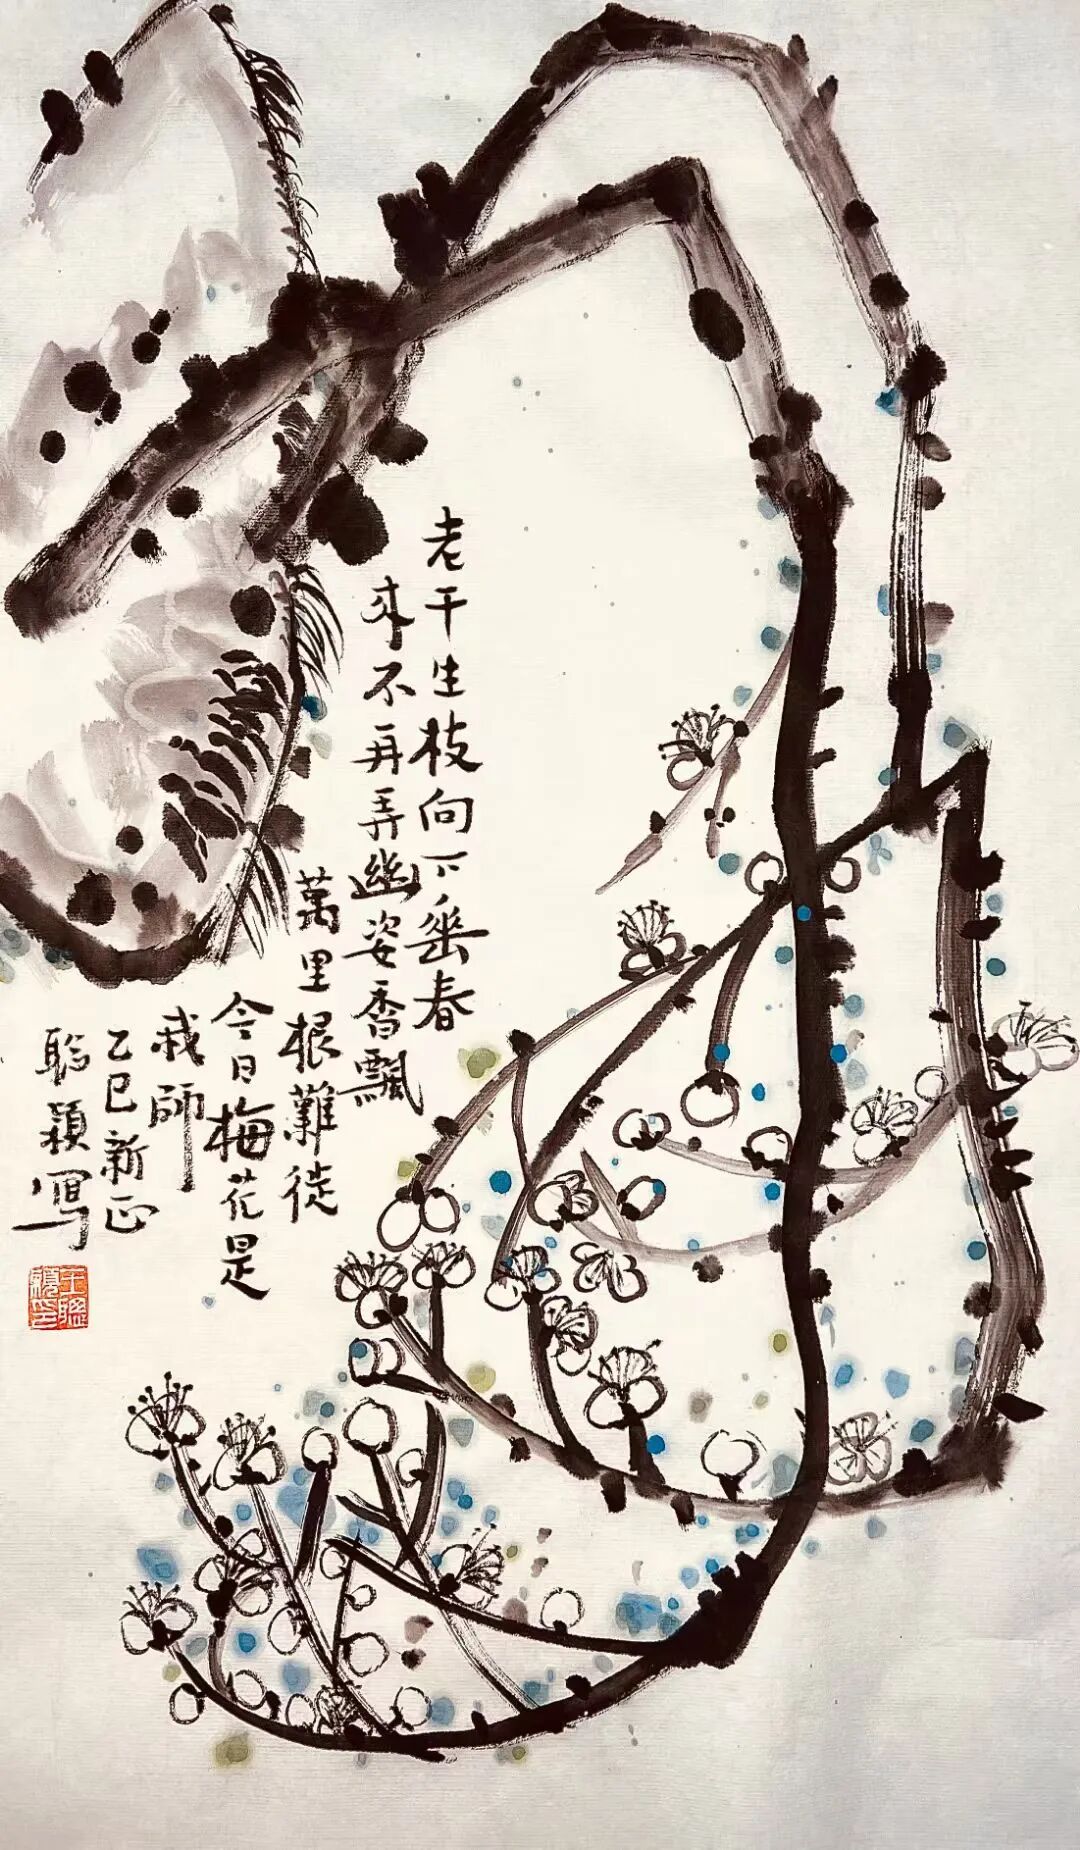 老干生枝向下垂春
来不再弄幽姿香飄
萬里根難徙
今日梅花是
我師
乙巳新正
聪穎寫
王聰穎印